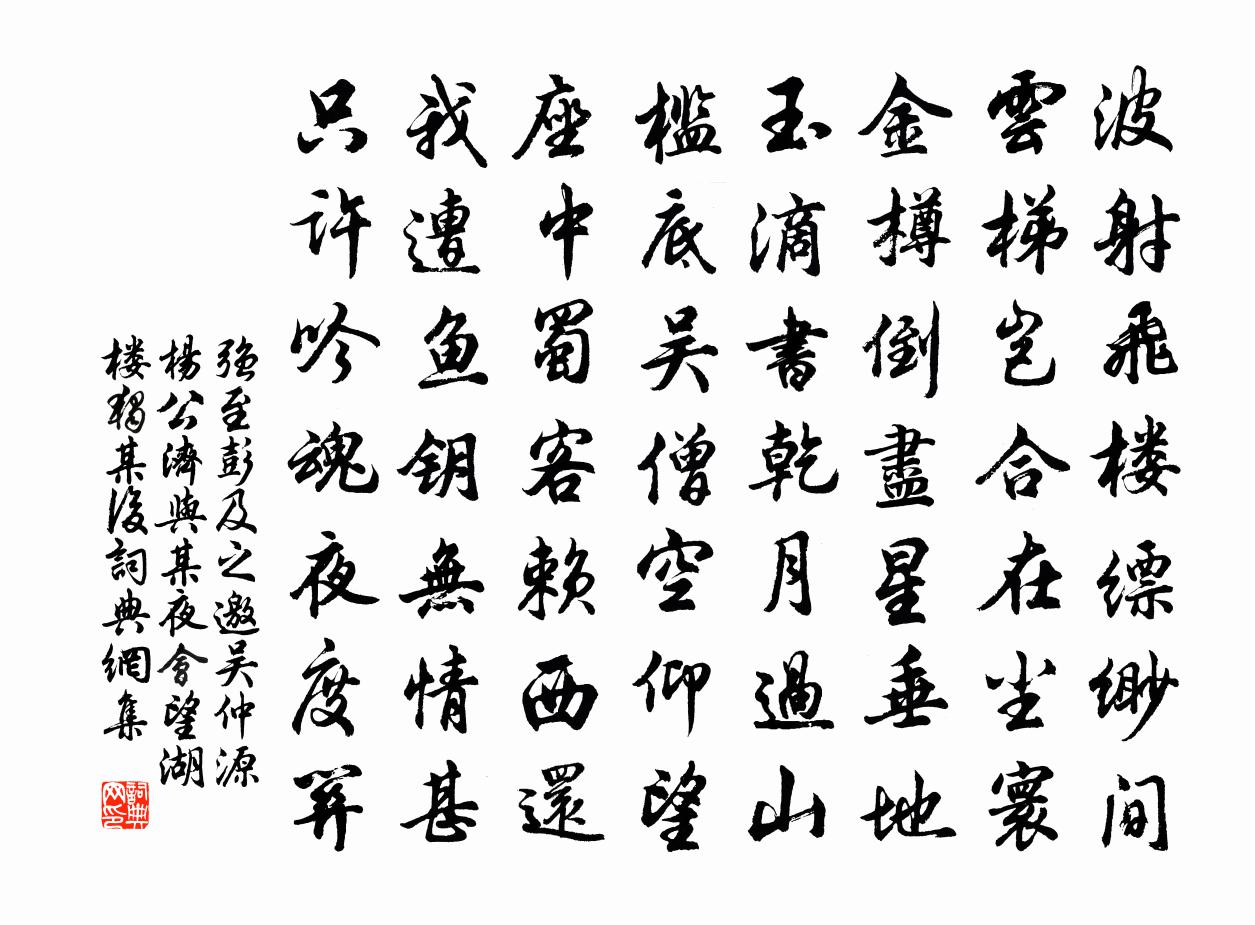 波射飛楼缥缈间
雲梯岂合在尘寰
金樽倒盡星垂地
玉滴書乾月過山
槛底吴僧空仰望
座中蜀客赖西還
我遭鱼钥無情甚
只許吟魂夜度關
强至彭及之邀吴仲源
楊公濟與某夜會望湖
楼獨某後詞典網集
詞典网印